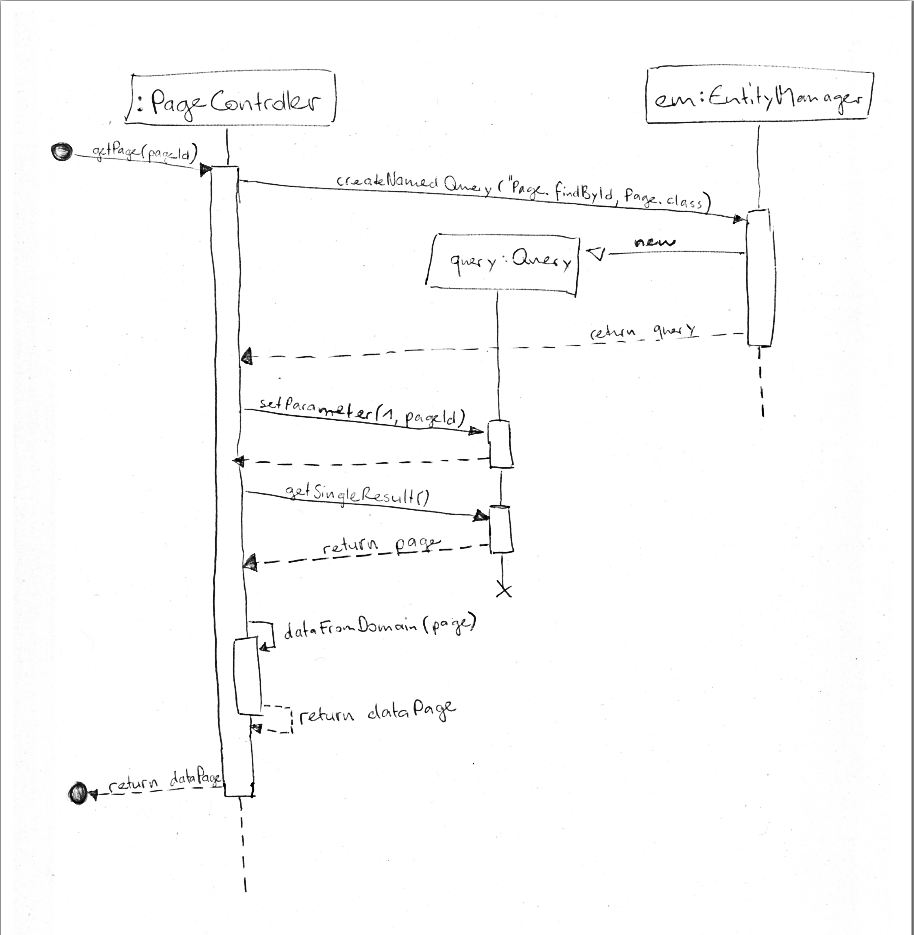 :PageController
em:EntityManager
getPage(pageId)
createNamedQuery("Page.findById, Page.class)
new
query:Query
return query
setParameter(1, pageId)
getSingleResult()
return page
dataFromDomain(page)
return dataPage
return dataPage